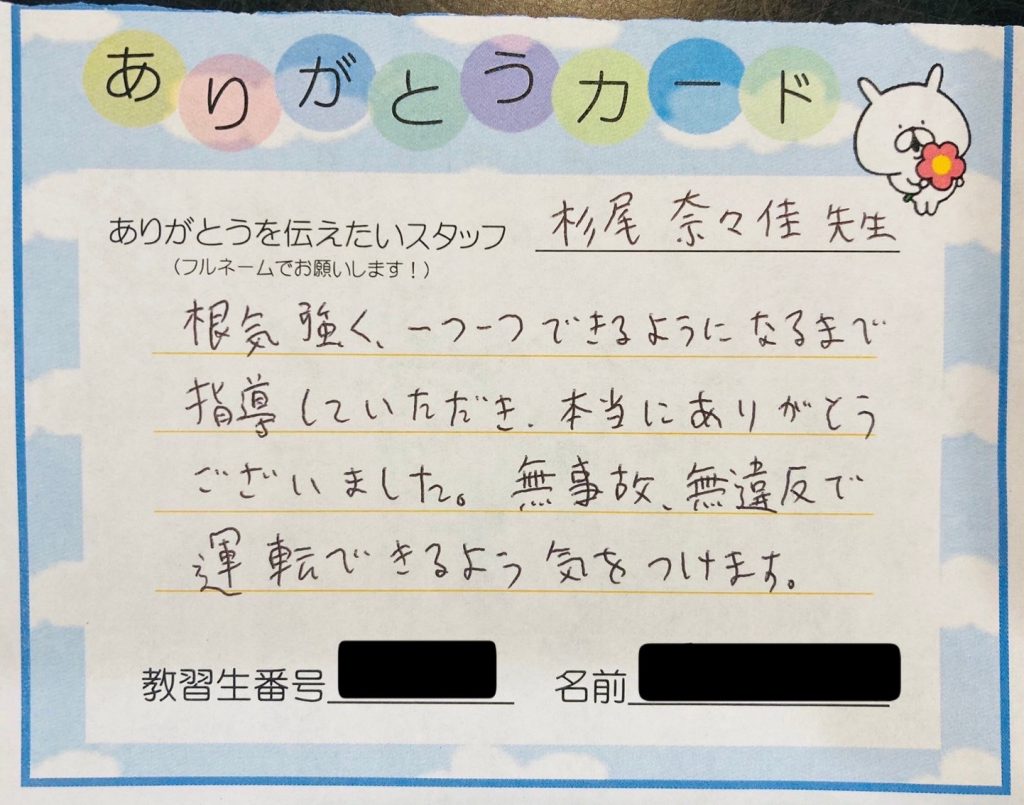 ありがとうカード
ありがとうを伝えたいスタッフ 杉尾 奈々佳 先生
(フルネームでお願いします!)
根気強く、一つ一つできるようになるまで
指導していただき、本当にありがとう
ございました。無事故、無違反で
運転できるよう気をつけます。
教習生番号 名前